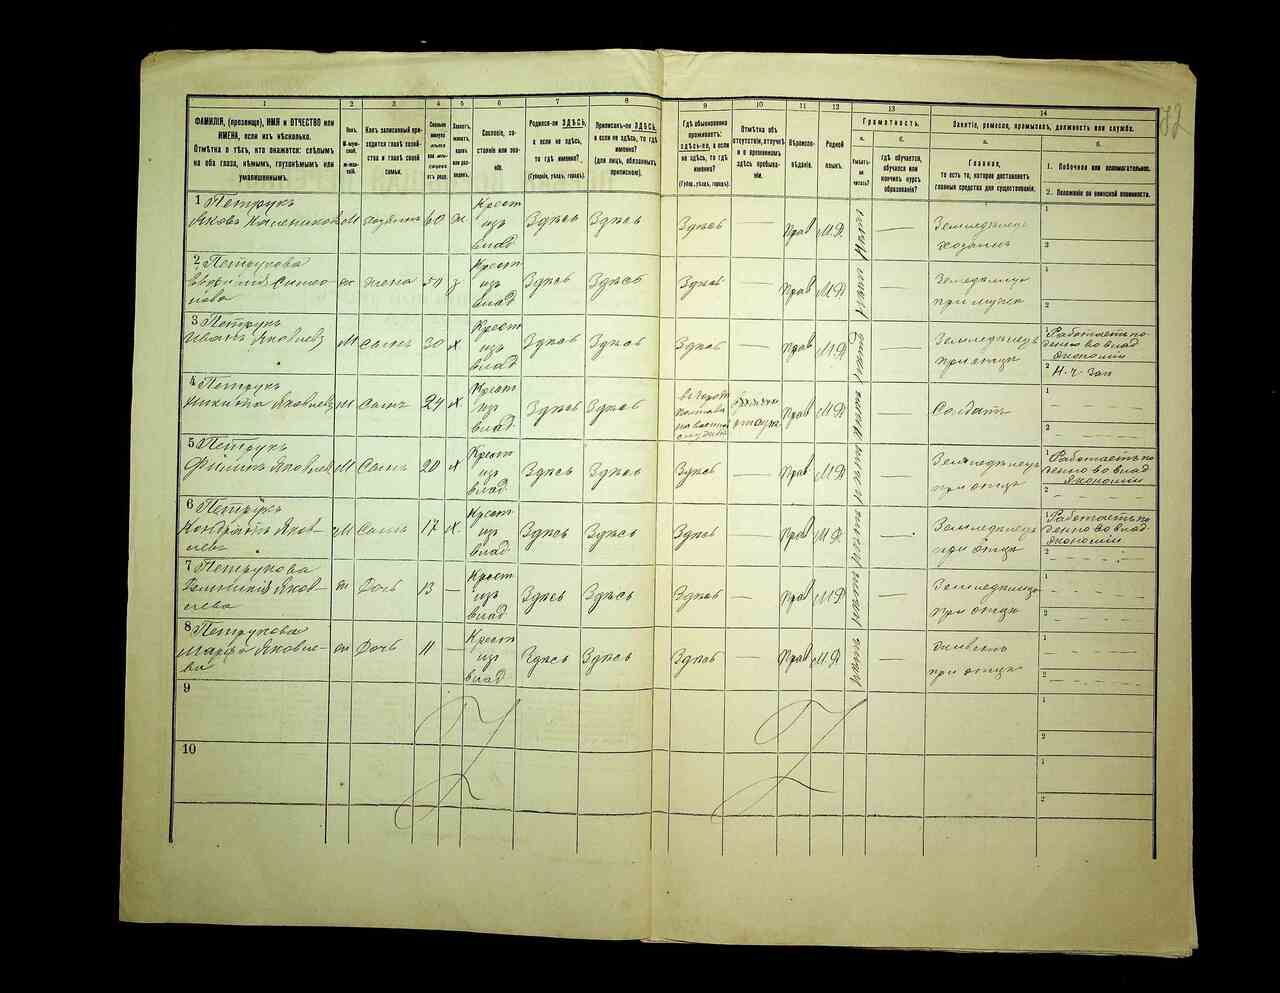 82
1 2 3 4 5 6 7 8 9 10 11 12 13 14
ФАМИЛІЯ, (прозвище), ИМЯ и ОТЧЕСТВО или ИМЕНА, если ихъ нѣсколько.
Отмѣтка о тѣхъ, кто окажется: слѣпымъ на оба глаза, нѣмымъ, глухонѣмымъ или умалишеннымъ.
Полъ. М-мужской. ж-женскій.
Какъ записанный приходится главѣ хозяйства и главѣ своей семьи.
Сколько минуло лѣтъ или мѣсяцевъ отъ роду.
Холостъ, женатъ, вдовъ или разведенъ.
Сословіе, состояніе или званіе.
Родился-ли ЗДѢСЬ, а если не здѣсь, то гдѣ именно? (Губернія, уѣздъ, городъ).
Приписанъ-ли ЗДѢСЬ, а если не здѣсь, то гдѣ именно? (для лицъ, обязанныхъ припискою).
Гдѣ обыкновенно проживаетъ: здѣсь-ли, а если не здѣсь, то гдѣ именно? (Губ., уѣздъ, городъ).
Отмѣтка объ отсутствіи, отлучкѣ и о временномъ здѣсь пребываніи.
Вѣроисповѣданіе.
Родной языкъ.
Грамотность.
а. Умѣетъ-ли читать?
б. гдѣ обучается, обучался или кончилъ курсъ образованія?
Занятіе, ремесло, промыселъ, должность или служба.
а. Главное, то есть то, которое доставляетъ главныя средства для существованія.
б. 1. Побочное или вспомогательное.
2. Положеніе по воинской повинности.
1 Петрукъ Яковъ М хозяинъ 60 Крест изъ влад Здѣсь Здѣсь Здѣсь — Прав М.Р. — Земледѣлецъ хозяинъ 1 2
2 Петрукова ж жена 50 Крест изъ влад Здѣсь Здѣсь Здѣсь — Прав М.Р — Земледѣлица при мужѣ 1 2
3 Петрукъ Иванъ Яковлевъ М Сынъ 30 х Крест изъ влад Здѣсь Здѣсь Здѣсь — Прав М.Р — Земледѣлецъ при отцѣ 1 Работаетъ поденно во влад экономіи 2 Н. ч. Зап
4 Петрукъ Никита Яковлевъ М Сынъ 24 х Крест изъ влад Здѣсь Здѣсь в город Полтава на военной службѣ Прав М.Р — Солдатъ 1 — — — 2 — — —
5 Петрукъ Филипъ Яковлев М Сынъ 20 х Крест изъ влад Здѣсь Здѣсь Здѣсь — Прав М.Р — Земледѣлецъ при отцѣ 1 Работаетъ поденно во влад экономіи 2 — — —
6 Петрукъ Кондратъ Яковлевъ М Сынъ 17 х Крест изъ влад Здѣсь Здѣсь Здѣсь — Прав М.Р — Земледѣлецъ при отцѣ 1 Работаетъ поденно во влад экономіи 2 — — —
7 Петрукова Яковлева ж Дочь 13 — Крест изъ влад Здѣсь Здѣсь Здѣсь — Прав М.Р — Земледѣлица при отцѣ 1 — — — 2 — — —
8 Петрукова Марфа Яковлева ж Дочь 11 — Крест изъ влад Здѣсь Здѣсь Здѣсь — Прав М.Р — при отцѣ 1 — — — 2 — — —
9 1 2
10 1 2